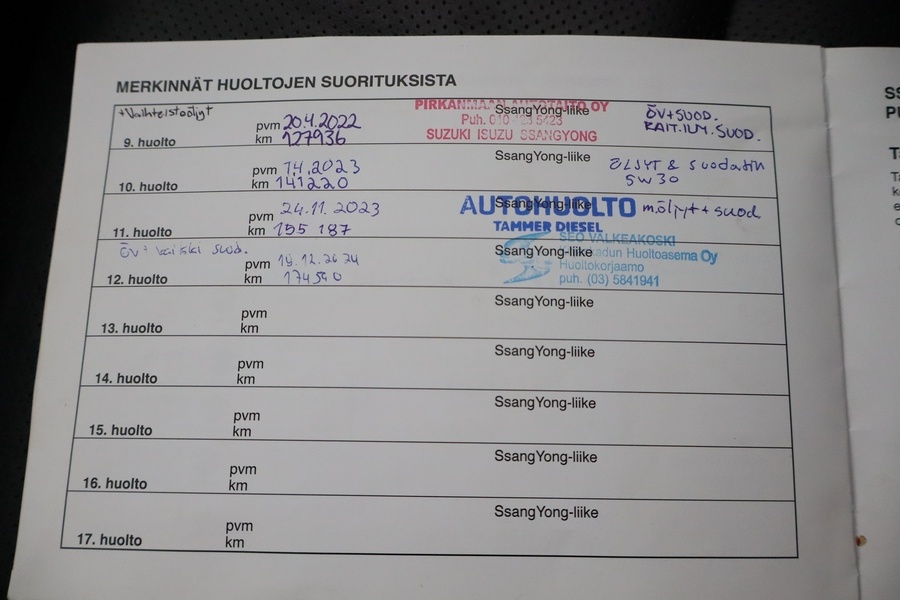 MERKINNÄT HUOLTOJEN SUORITUKSISTA
+Vaihteistoöljyt
9. huolto
pvm 20.4.2022
km 127936
SsangYong-liike
PIRKANMAAN AUTOTAITO OY
Puh. 010
5423
SUZUKI ISUZU SSANGYONG
ÖV+SUOD.
RAIT.ILM.SUOD.
10. huolto
pvm 7.4.2023
km 141220
SsangYong-liike
ÖLJYT & suodatin
5W30
11. huolto
pvm 24.11.2023
km 155 187
SsangYong-liike
AUTOHUOLTO
TAMMER DIESEL
möljyt + suod
ÖV+ kaikki suod.
12. huolto
pvm 18.12.2024
km 174590
SsangYong-liike
SEO VALKEAKOSKI
kadun Huoltoasema Oy
Huoltokorjaamo
puh. (03) 5841941
13. huolto
pvm
km
SsangYong-liike
14. huolto
pvm
km
SsangYong-liike
15. huolto
pvm
km
SsangYong-liike
16. huolto
pvm
km
SsangYong-liike
17. huolto
pvm
km
SsangYong-liike